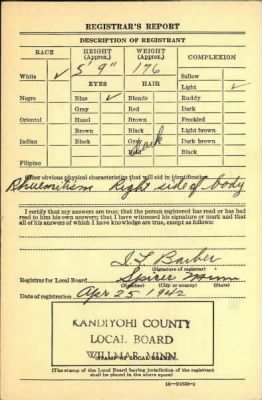 REGISTRAR'S REPORT
DESCRIPTION OF REGISTRANT
RACE HEIGHT (Approx.) WEIGHT (Approx.) COMPLEXION
5' 9" 176
White ✓ Sallow
EYES HAIR Light ✓
Negro Blue ✓ Blonde Ruddy
Gray Red Dark
Oriental Hazel Brown Freckled
Brown Black Light brown
Indian Black Gray Dark brown
dark
Bald Black
Filipino
Other obvious physical characteristics that will aid in identification
Rhuemitism Right side of body
I certify that my answers are true; that the person registered has read or has had
read to him his own answers; that I have witnessed his signature or mark and that all
of his answers of which I have knowledge are true, except as follows:
Barber
(Signature of registrar)
Registrar for Local Board Spicer Minn
(Number) (City or county) (State)
Date of registration Apr 25 1942
KANDIYOHI COUNTY
LOCAL BOARD
WILLMAR, MINN.
(STAMP OF LOCAL BOARD)
(The stamp of the Local Board having jurisdiction of the registrant
shall be placed in the above space)